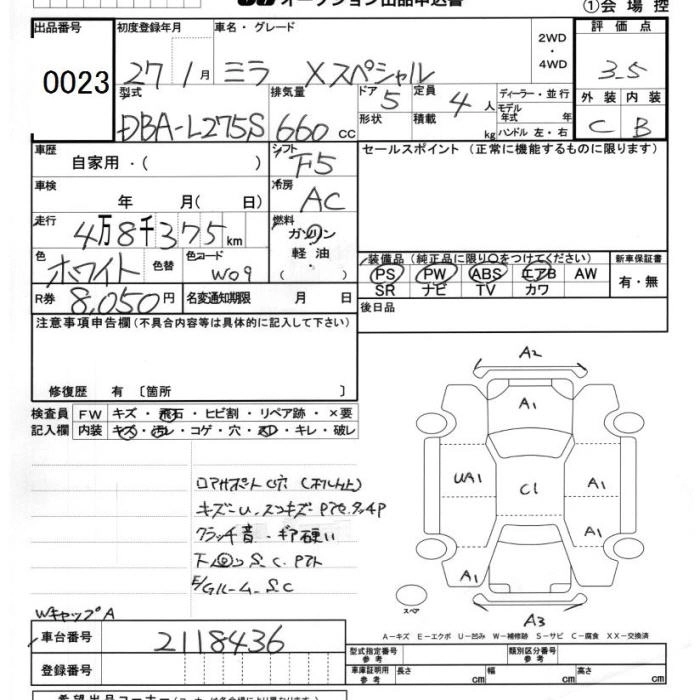 オークション出品申込書
①会場控
出品番号
0023
初度登録年月
27 1月
車名・グレード
ミラ Xスペシャル
2WD・4WD
評価点
3.5
型式
DBA-L275S
排気量
660 cc
ドア 5
形状
定員 4人
積載 kg
ディーラー・並行
モデル年式 年
ハンドル 左・右
外装 内装
C B
車歴
自家用・( )
シフト
F5
セールスポイント (正常に機能するものに限ります)
車検
年 月( 日)
冷房
AC
走行
4万8千375km
燃料
ガソリン
軽油・
( )
色
ホワイト
色替
色コード
W09
装備品 (純正品に限り○をつけてください)
新車保証書
PS PW ABS エアB AW
SR ナビ TV カワ
有・無
R券 8,050円
名変通知期限 月 日
後日品
注意事項申告欄 (不具合内容等は具体的に記入して下さい)
修復歴 有 〔箇所 〕
検査員記入欄
FW キズ・飛石・ヒビ割・リペア跡・×要
内装 キズ・汚レ・コゲ・穴・ネジ・キレ・破レ
A2
A1
UA1
C1
A1
A1
A1
A3
キズ-U、スコキズ-
クラッチ音・ギア硬い
下 S.C.
E/Gルーム S.C
スペア
WキャップA
A-キズ E-エクボ U-凹み W-補修跡 S-サビ C-腐食 XX-交換済
車台番号 2118436
登録番号
型式指定番号 参考
類別区分番号 参考
車庫証明用 参考
長さ cm 幅 cm 高さ cm
希望出品コーナー